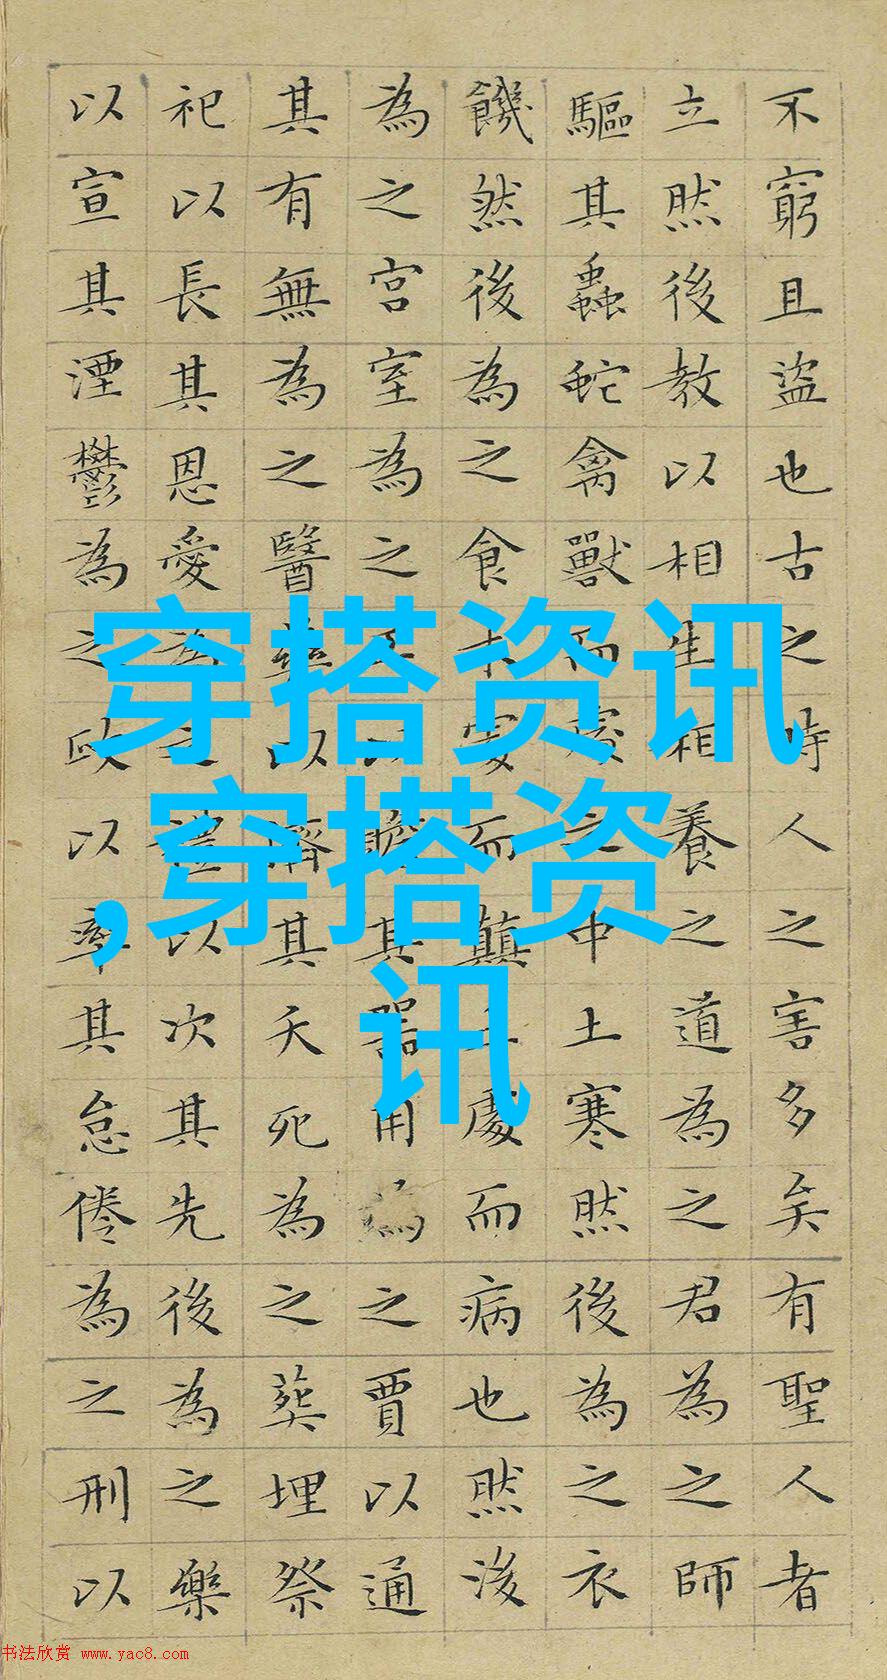 穿搭资讯
,穿搭资
讯
不窮且盜也古之時人之害多矣有聖人者
立然後教以相生相養之道為之君為之師
驅其蟲蛇禽獸而處之中土寒然後為之衣
饑然後為之食木處而顛土處而病也然後
為之宮室為之工以贍其器用為之賈以通
其有無為之醫藥以濟其夭死為之葬埋祭
祀以長其恩愛為之禮以次其先後為之樂
以宣其湮鬱為之政以率其怠倦為之刑以
书法欣赏 www.yac8.com